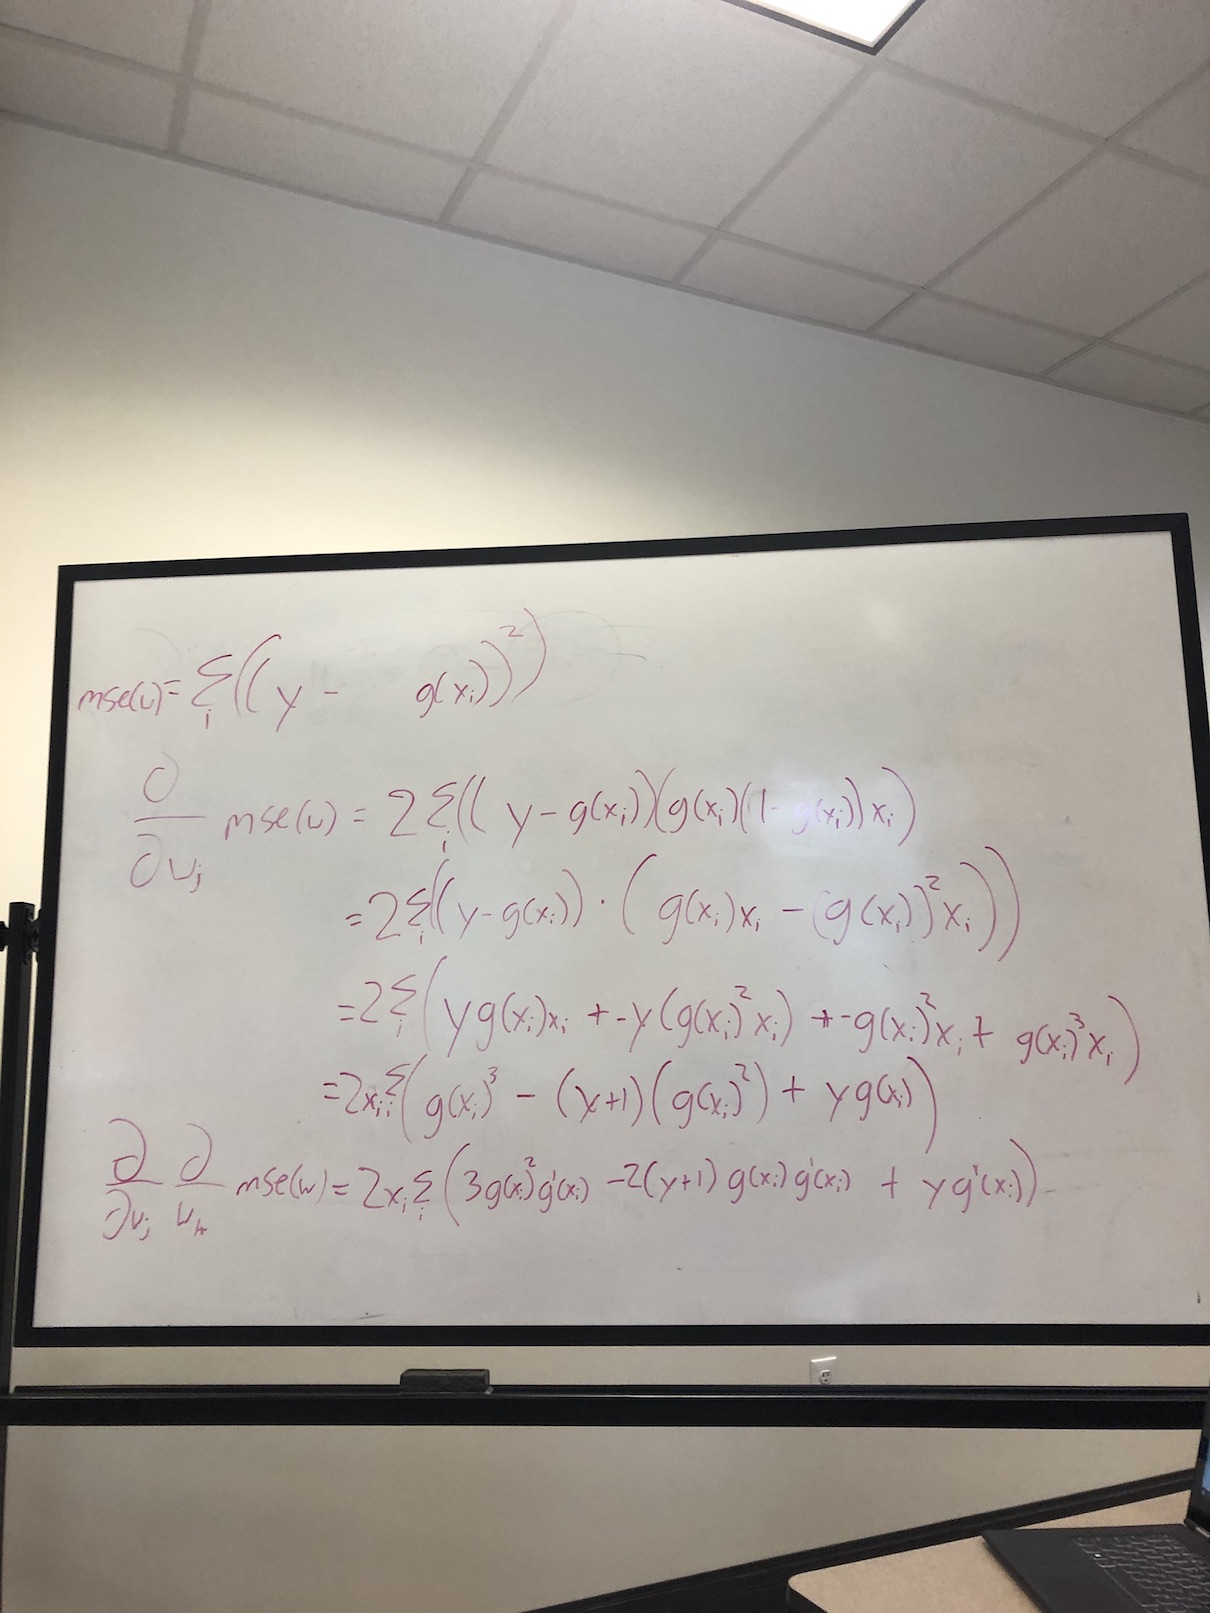 mse(w) = Σ_i ((y - g(x_i))²)
∂/∂w_j mse(w) = 2 Σ_i ((y - g(x_i))(g(x_i)(1 - g(x_i)) x_i)
= 2 Σ_i ((y - g(x_i)) · (g(x_i)x_i - (g(x_i))² x_i))
= 2 Σ_i (y g(x_i)x_i + -y(g(x_i)² x_i) + -g(x_i)² x_i + g(x_i)³ x_i)
= 2x_i Σ_i (g(x_i)³ - (y+1)(g(x_i)²) + y g(x_i))
∂/∂w_j ∂/w_k mse(w) = 2x_i Σ_i (3g(x_i)² g'(x_i) - 2(y+1) g(x_i) g'(x_i) + y g'(x_i))